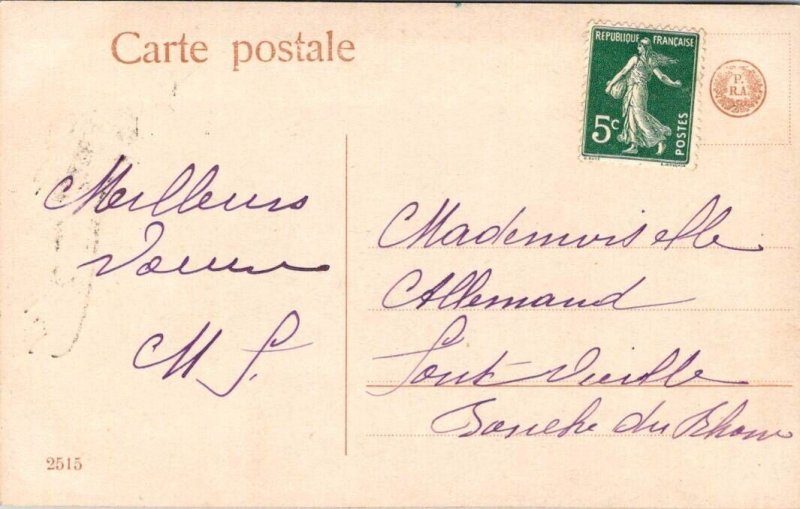 Carte postale
REPUBLIQUE FRANÇAISE
5c
POSTES
P.
R.A.
Meilleurs
Voeux
M S.
Mademoiselle
Allemand
Font-Vieille
Bouche du Rhone
2515